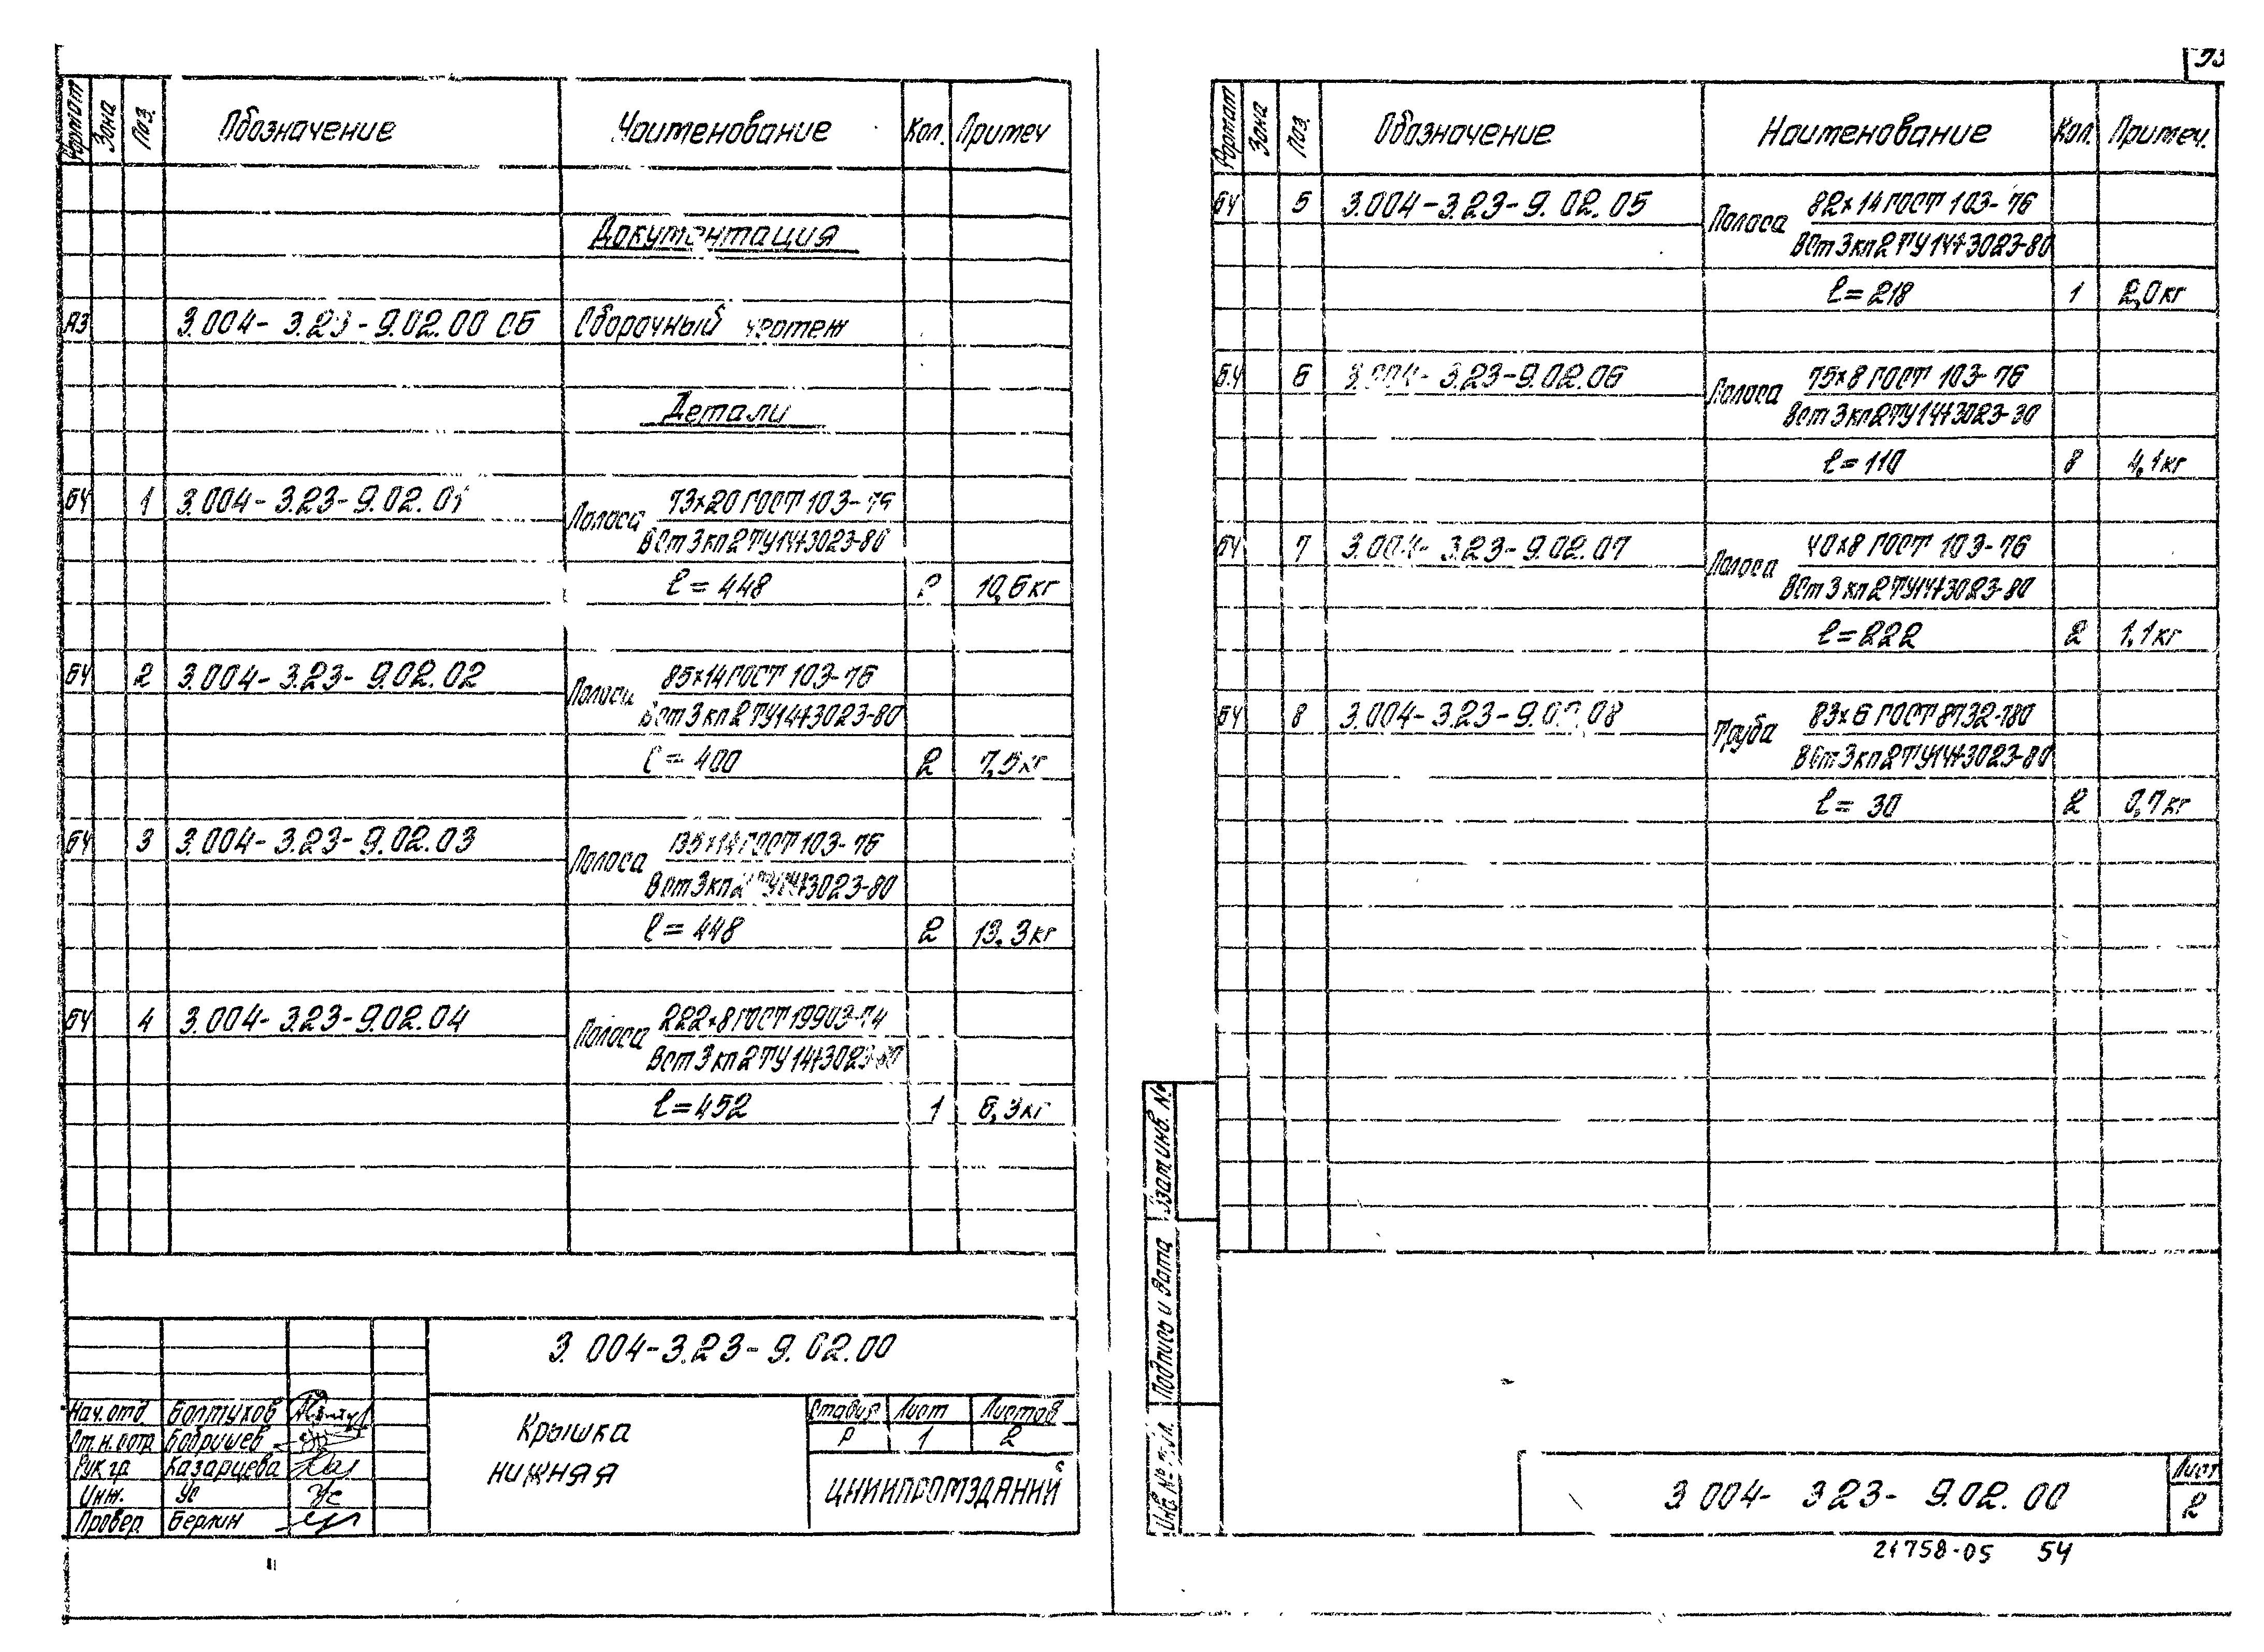 Формат Зона Поз. Обозначение Наименование Кол. Примеч
Документация
А3 3.004-3.23-9.02.00 СБ Сборочный чертеж
Детали
БЧ 1 3.004-3.23-9.02.01 Полоса 73×20 ГОСТ 103-76
ВСт3кп2 ТУ14-1-3023-80
ℓ=448 2 10,6кг
БЧ 2 3.004-3.23-9.02.02 Полоса 85×14 ГОСТ 103-76
ВСт3кп2 ТУ14-1-3023-80
ℓ=400 2 7,5кг
БЧ 3 3.004-3.23-9.02.03 Полоса 135×14 ГОСТ 103-76
ВСт3кп2 ТУ14-1-3023-80
ℓ=448 2 13.3кг
БЧ 4 3.004-3.23-9.02.04 Полоса 222×8 ГОСТ 19903-74
ВСт3кп2 ТУ14-1-3023-80
ℓ=452 1 6,3кг
3.004-3.23-9.02.00
Нач.отд Болтухов
Ст.н.сотр Бобрышев
Рук гр Казарцева
Инж. Ус
Провер. Берлин
Крышка
нижняя
Стадия Лист Листов
Р 1 2
ЦНИИПРОМЗДАНИЙ
53
Формат Зона Поз. Обозначение Наименование Кол. Примеч.
БЧ 5 3.004-3.23-9.02.05 Полоса 82×14 ГОСТ 103-76
ВСт3кп2 ТУ14-1-3023-80
ℓ=218 1 2,0кг
БЧ 6 3.004-3.23-9.02.06 Полоса 75×8 ГОСТ 103-76
ВСт3кп2 ТУ14-1-3023-80
ℓ=110 8 4,1кг
БЧ 7 3.004-3.23-9.02.07 Полоса 40×8 ГОСТ 103-76
ВСт3кп2 ТУ14-1-3023-80
ℓ=222 2 1,1кг
БЧ 8 3.004-3.23-9.02.08 Труба 83×6 ГОСТ 8732-78
ВСт3кп2 ТУ14-1-3023-80
ℓ=30 2 0,7кг
Взам инв. №
Подпись и дата
Инв. № подл.
3 004-3 23-9.02.00
Лист
2
21758-05 54